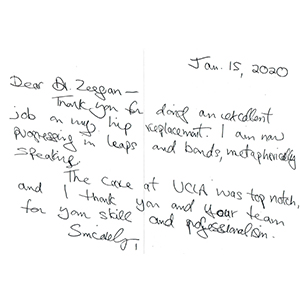 Jan. 15, 2020
Dear Dr. Zeegan —
Thank you for doing an excellent
job on my hip replacement. I am now
progressing in leaps and bonds, metaphorically
speaking.
The care at UCLA was top notch,
and I thank you and your team
for your skill and professionalism.
Sincerely,